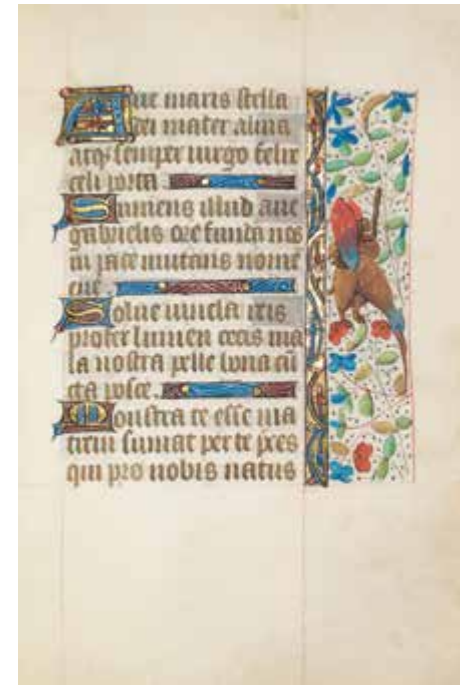 Aue maris stella
dei mater alma
atq; semper uirgo felix
celi porta
Sumens illud aue
gabrielis ore funda nos
in pace mutans nomē
eue
Solue uincla reis
profer lumen cecis ma
la nostra pelle bona cū
cta posce
Monstra te esse ma
trem sumat per te p̄ces
qui pro nobis natus